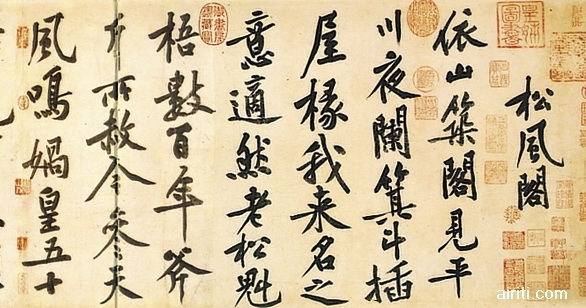 松風閣
依山築閣見平
川夜闌箕斗插
屋椽我来名之
意適然老松魁
梧數百年斧
斤所赦今參天
風鳴媧皇五十
airrti.com